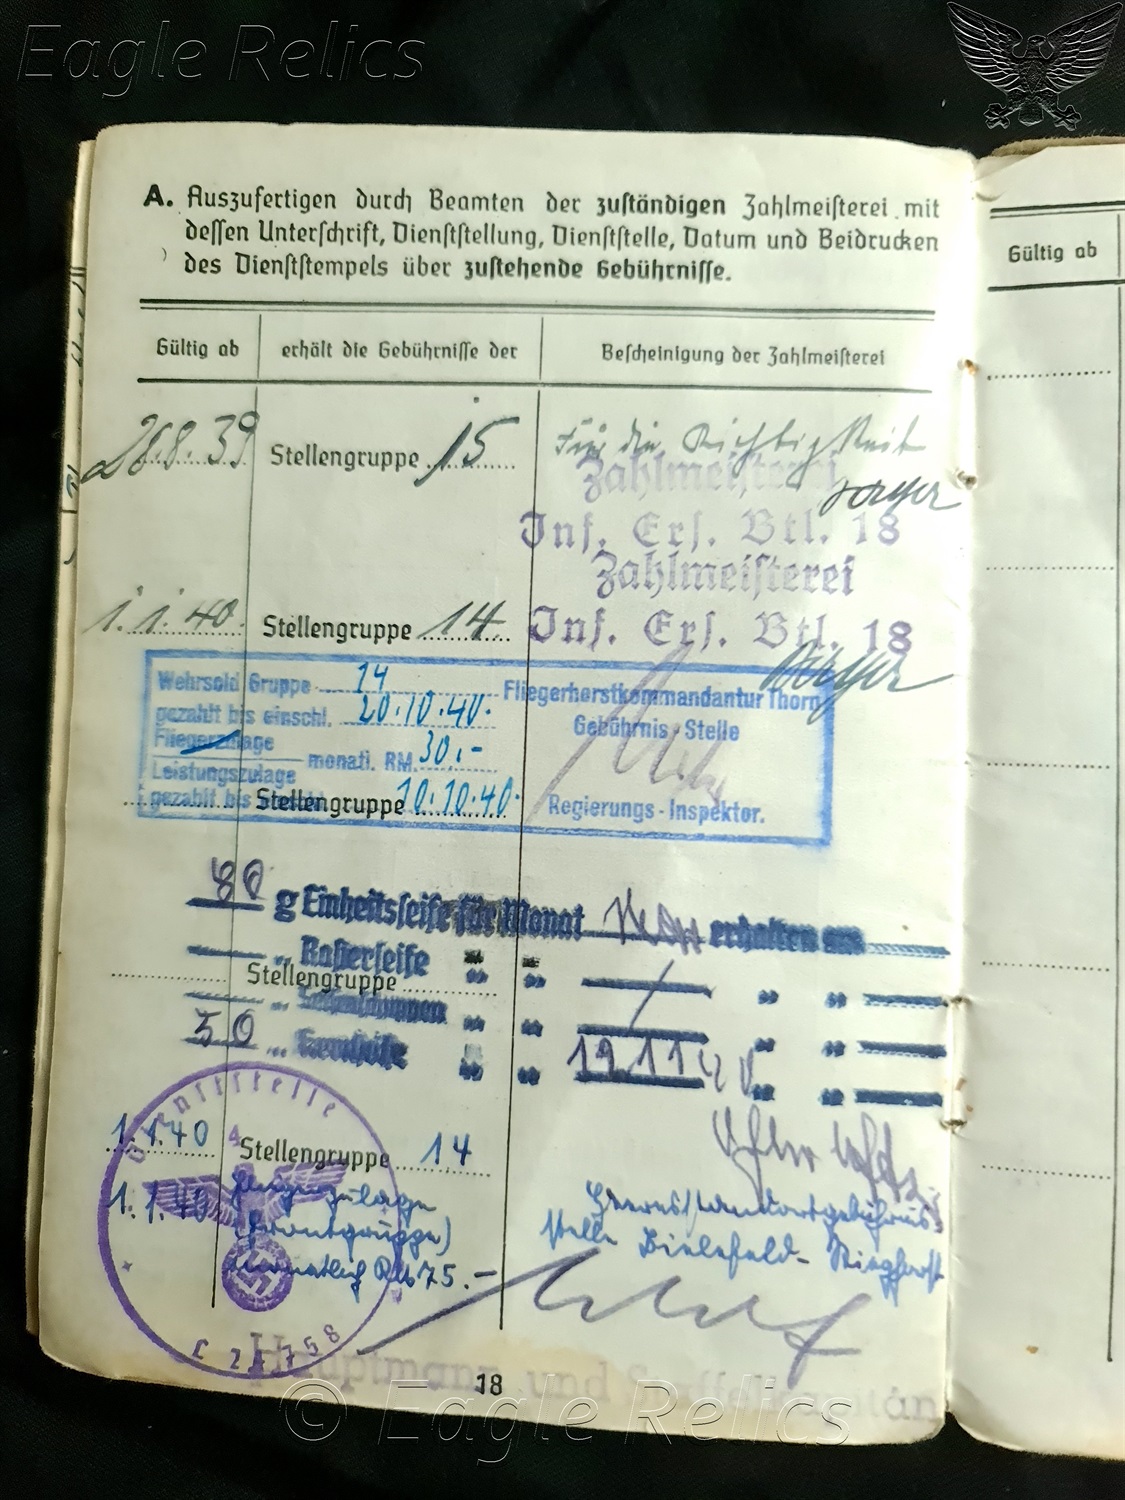 Eagle Relics
A. Auszufertigen durch Beamten der zuständigen Zahlmeisterei mit
dessen Unterschrift, Dienststellung, Dienststelle, Datum und Beidrucken
des Dienststempels über zustehende Gebührnisse.
Gültig ab
erhält die Gebührnisse der
Bescheinigung der Zahlmeisterei
Gültig ab
26.8.39 Stellengruppe 15 Für die Richtigkeit
Zahlmeisterei
Inf. Ers. Btl. 18
Zahlmeisterei
1.1.40. Stellengruppe 14 Inf. Ers. Btl. 18
Wehrsold Gruppe 14 Fliegerhorstkommandantur Thorn
gezahlt bis einschl. 20.10.40. Gebührnis-Stelle
Fliegerzulage
monatl. RM. 30.-
Leistungszulage
gezahlt bis Stellengruppe 10.10.40. Regierungs-Inspektor.
80 g Einheitsseife für Monat Nov erhalten am
" Rasierseife " "
Stellengruppe
50
19.11.40
Dienststelle
1.1.40 Stellengruppe 14
1.1.40 Fliegerzulage Heeresstandortgebührnis-
(Frontgruppe) stelle Bielefeld-
monatlich RM 75.-
L 24758
Hauptmann und Staffelkapitän
18
© Eagle Relics